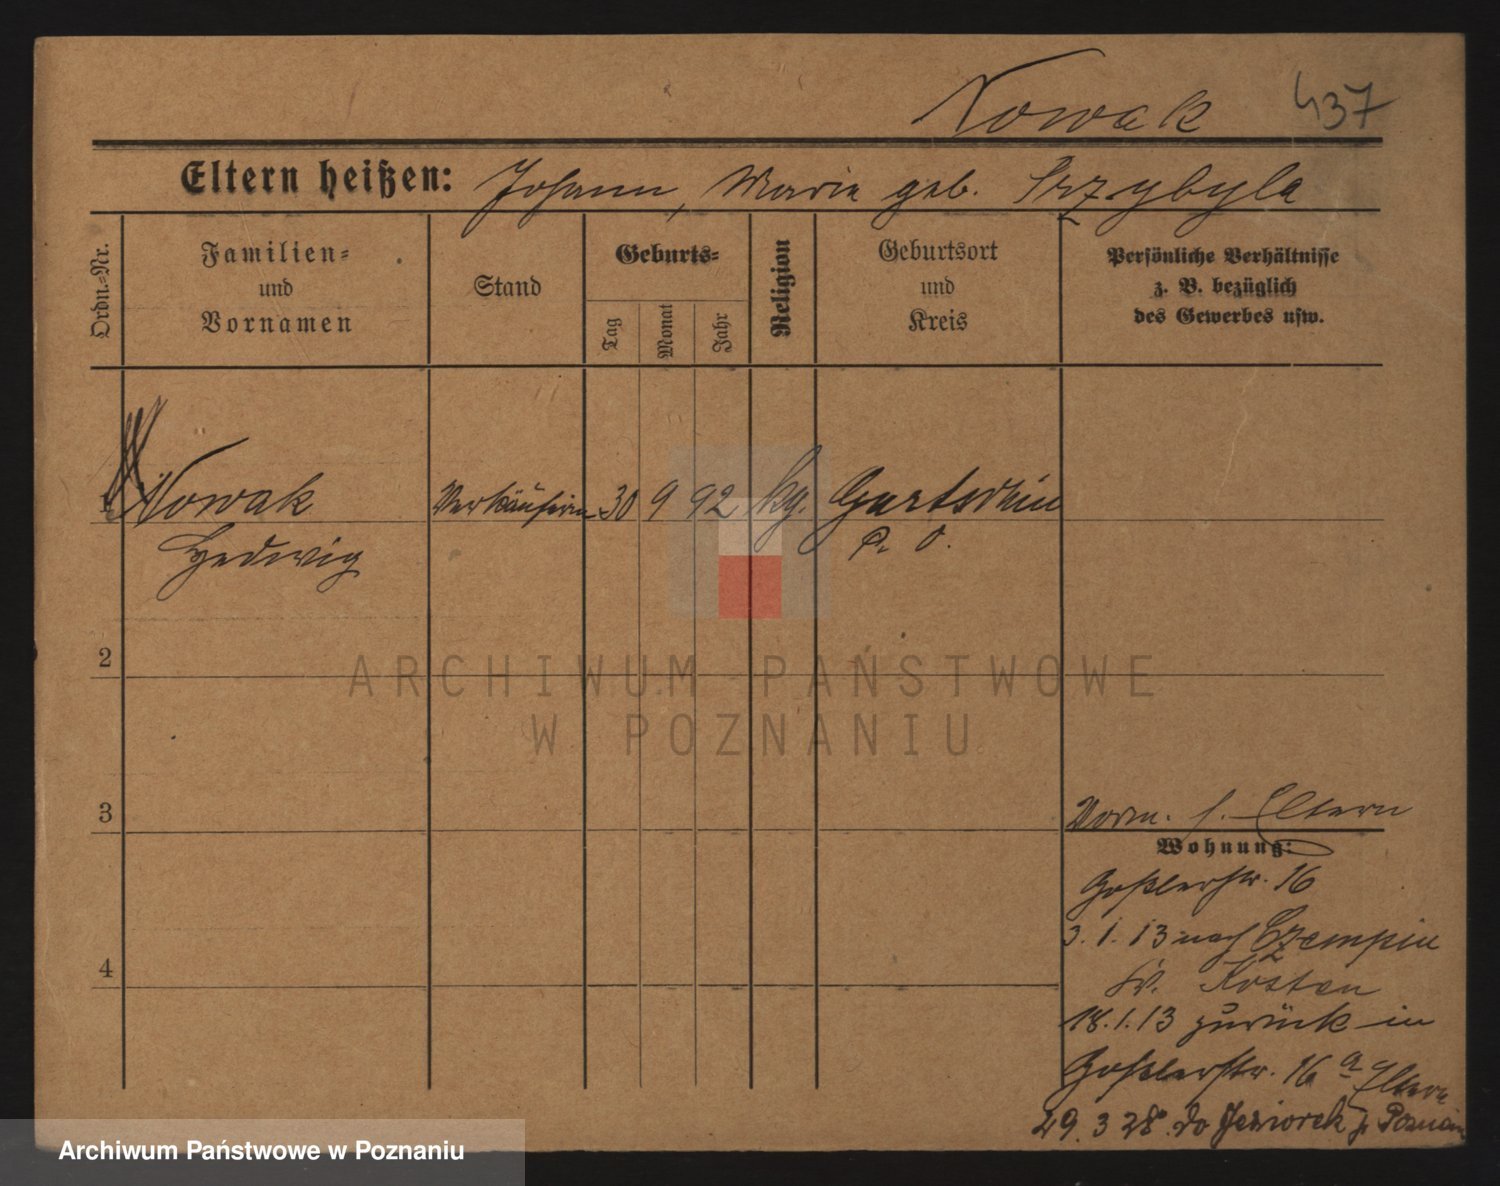 Nowak 437
Eltern heißen: Johann, Marie geb. Przybyla
Ordn.-Nr.
Familien-
und
Vornamen
Stand
Geburts-
Tag
Monat
Jahr
Religion
Geburtsort
und
Kreis
Persönliche Verhältnisse
z. B. bezüglich
des Gewerbes usw.
1 Nowak Verkäuferin 30 9 92 kg. Gurtschin
Hedwig P. O.
2
ARCHIWUM PAŃSTWOWE
W POZNANIU
3
Vorm. s. Eltern
Wohnung:
Goßlerstr. 16
3.1.13 nach Czempin
Kr. Kosten
18.1.13 zurück in
Goßlerstr. 16 a Eltern
4
29. 3 28. do Jeziorek p. Poznań
Archiwum Państwowe w Poznaniu